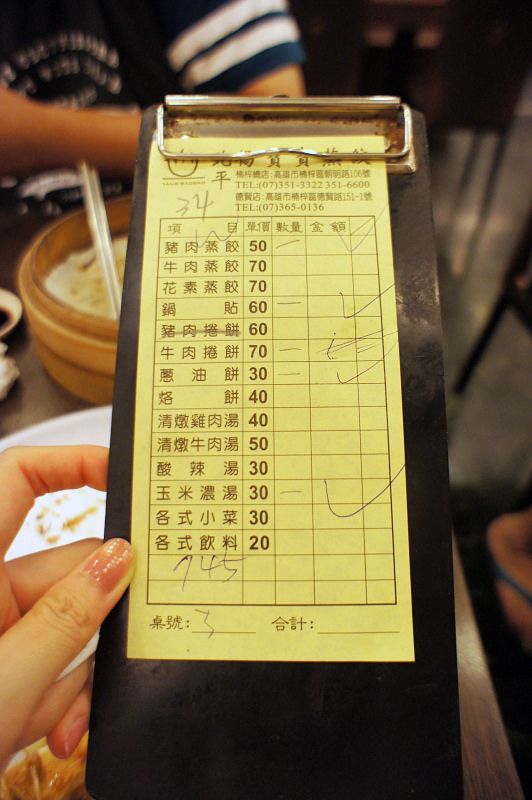 北 楊寶寶蒸餃
平
楠梓總店:高雄市楠梓區朝明路106號
TEL:(07)351-3322 351-6600
德賢店:高雄市楠梓區德賢路151-1號
TEL:(07)365-0136
34
項 目 單價 數量 金額
豬肉蒸餃 50 一
牛肉蒸餃 70
花素蒸餃 70
鍋貼 60 一
豬肉捲餅 60
牛肉捲餅 70 一
蔥油餅 30 一
烙餅 40
清燉雞肉湯 40
清燉牛肉湯 50
酸辣湯 30
玉米濃湯 30 一
各式小菜 30
各式飲料 20
745
桌號: 3 合計: